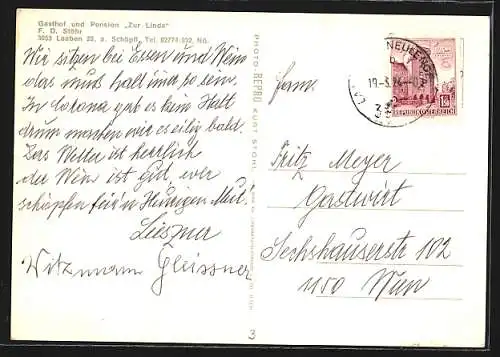 Gasthof und Pension „Zur Linde"
F. D. Stöhr
3053 Laaben 28, a. Schöpfl, Tel. 02774-332, Nö.
Wir sitzen bei Essen und Wein
das muß halt mal so sein.
In Corona gab es kein Halt
drum machten wir es eilig bald.
Das Wetter ist herrlich
der Wein ist gut, wir
schöpfen für'n Heurigen Mut!
Witzmann Gleissner
PHOTO REPRO KURT STOHL
Fam.
Fritz Meyer
Gastwirt
Sechshauserstr 102
1150 Wien
NEULENG
19.-3.74
REPUBLIK ÖSTERREICH
3